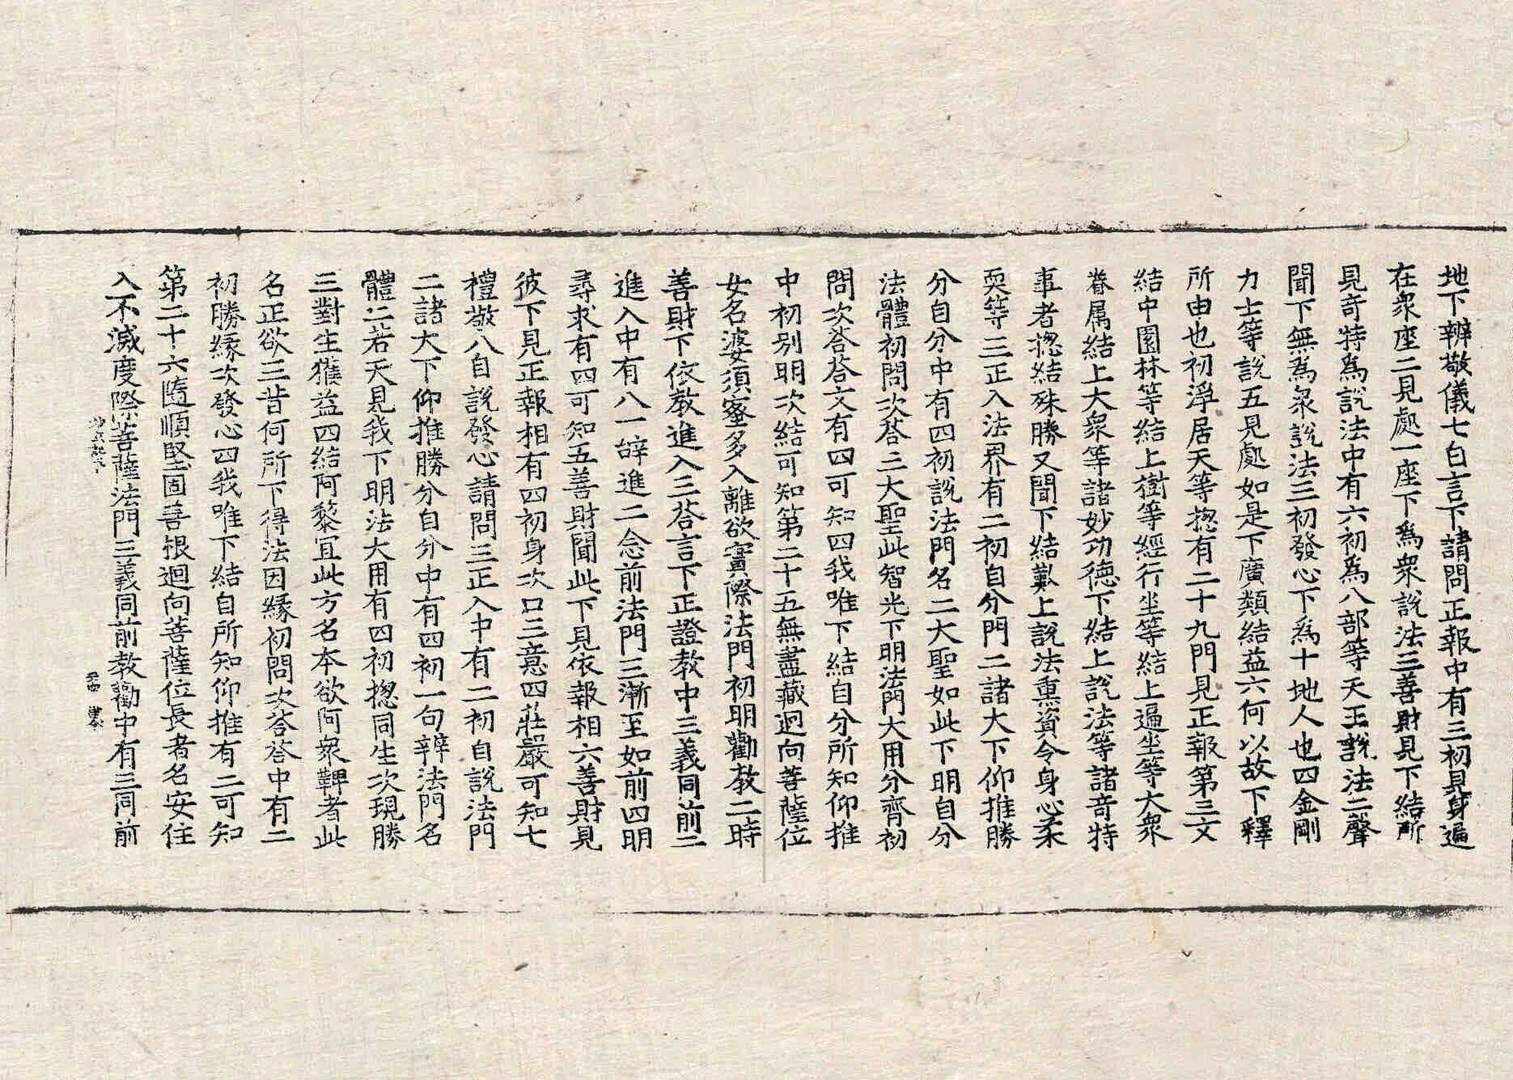 地下辨敬儀七白言下請問正報中有三初見身遍
在衆座二見處一座下爲衆說法三善財見下結所
見竒特爲說法中有六初爲八部等天王說法二聲
聞下無爲衆說法三初發心下爲十地人也四金剛
力士等說五見處如是下廣類結益六何以故下釋
所由也初淨居天等揔有二十九門見正報第三文
結中園林等結上樹等經行坐等結上遍坐等大衆
眷属結上大衆等諸妙功德下結上說法等諸竒特
事者揔結殊勝又聞下結歎上說法熏資令身心柔
耎等三正入法界有二初自分門二諸大下仰推勝
分自分中有四初說法門名二大聖如此下明自分
法體初問次荅三大聖此智光下明法門大用分齊初
問次荅荅文有四可知四我唯下結自分所知仰推
中初別明次結可知第二十五無盡藏迴向菩薩位
女名婆須蜜多入離欲實際法門初明勸教二時
善財下依教進入三荅言下正證教中三義同前二
進入中有八一辝進二念前法門三漸至如前四明
尋求有四可知五善財聞此下見依報相六善財見
彼下見正報相有四初身次口三意四莊嚴可知七
禮敬八自說發心請問三正入中有二初自說法門
二諸大下仰推勝分自分中有四初一句辨法門名
體二若天見我下明法大用有四初揔同生次現勝
三對生獲益四結阿黎冝此方名本欲阿衆鞞者此
名正欲三昔何所下得法因緣初問次荅荅中有二
初勝緣次發心四我唯下結自所知仰推有二可知
第二十六隨順堅固善根迴向菩薩位長者名安住
入不滅度際菩薩法門三義同前教勸中有三同前